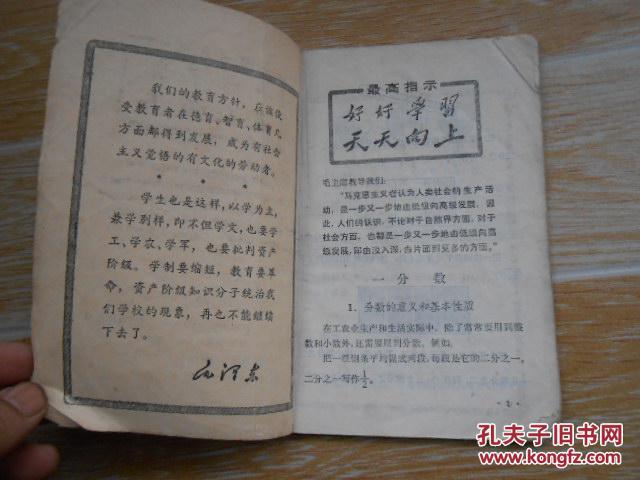 我们的教育方针，应该使
受教育者在德育、智育、体育几
方面都得到发展，成为有社会
主义觉悟的有文化的劳动者。
* * *
学生也是这样，以学为主，
兼学别样，即不但学文，也要学
工、学农、学军，也要批判资产
阶级。学制要缩短，教育要革
命，资产阶级知识分子统治我
们学校的现象，再也不能继续
下去了。
毛泽东
最高指示
好好学習
天天向上
毛主席教导我们：
“马克思主义者认为人类社会的生产活
动，是一步又一步地由低级向高级发展，因
此，人们的认识，不论对于自然界方面，对于
社会方面，也都是一步又一步地由低级向高
级发展，即由浅入深，由片面到更多的方面。”
一 分 数
1. 分数的意义和基本性质
在工农业生产和生活实际中，除了常常要用到整
数和小数外，还需要用到分数。例如，
把一根钢条平均锯成两段，每段是它的二分之一，
二分之一写作½。
· 1 ·
孔夫子旧书网
www.kongfz.com